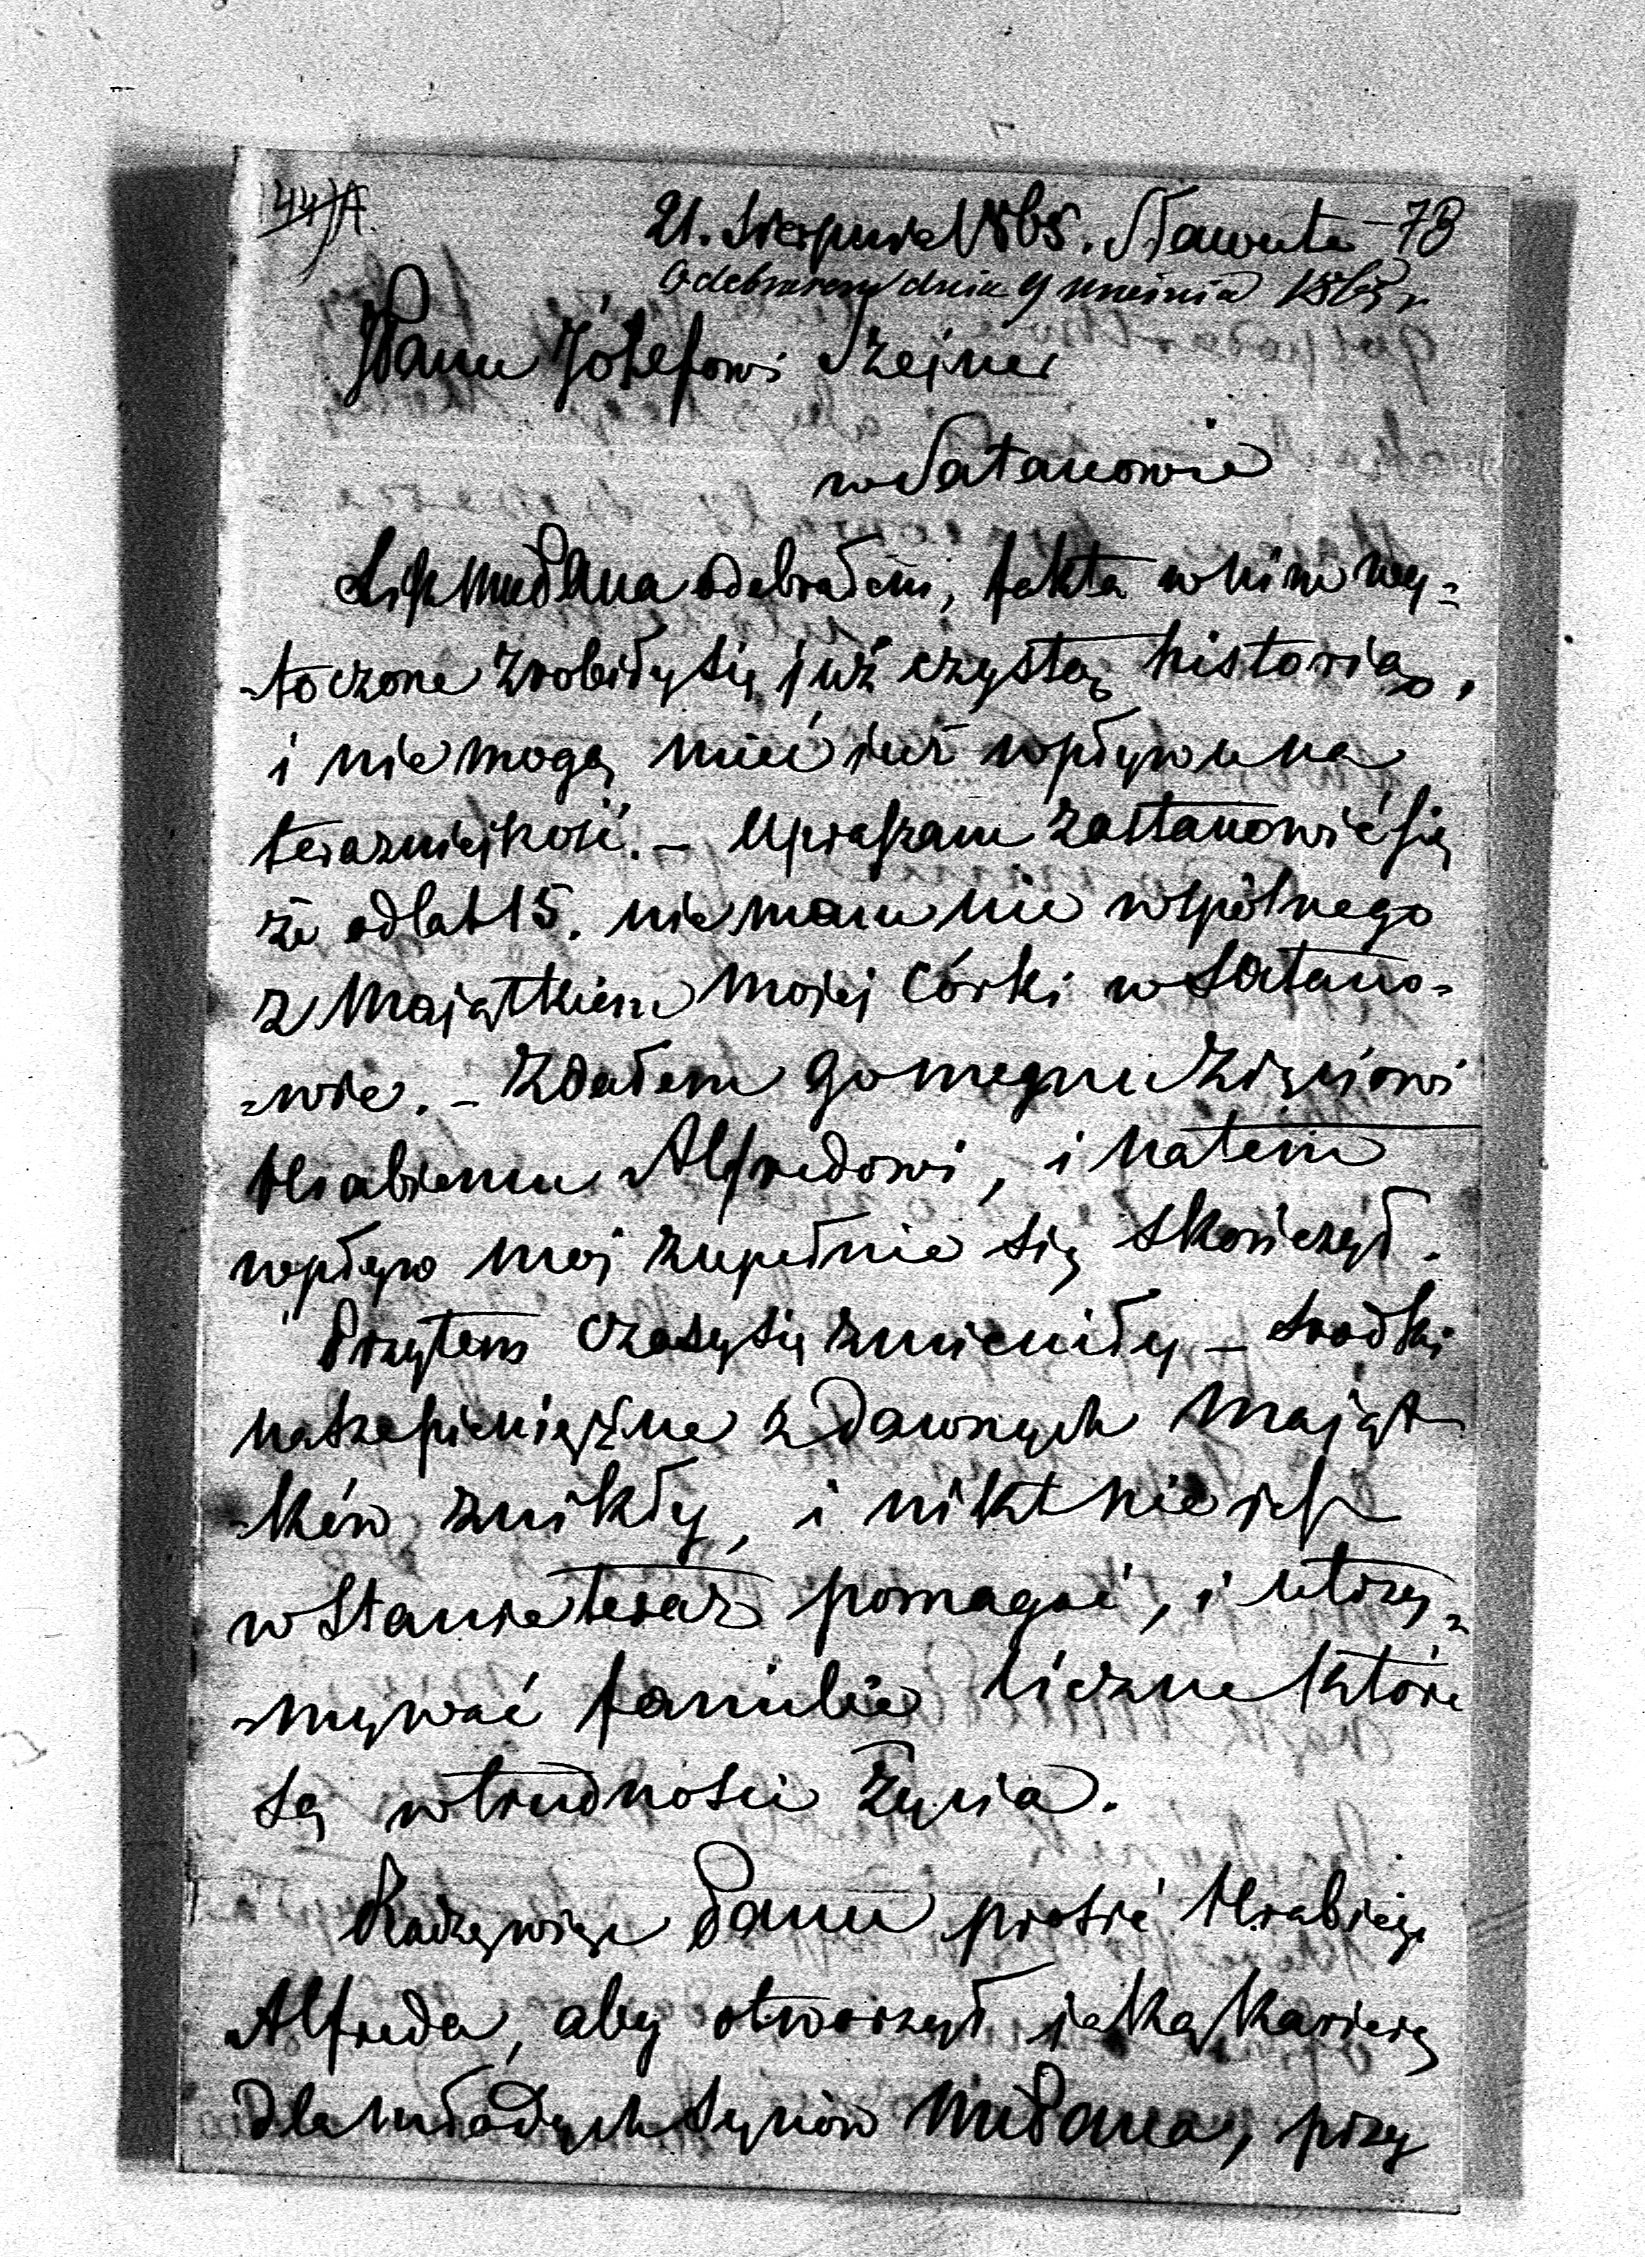 44)A.
21. Sierpnia 1865. Sławuta 78
Odebrałem dnia 9 1865 r
JPanu Józefowi Szejner
w Satanowie
List WMćPana odebrałem, fakta w nim wy=
=toczone zrobiły się już czystą historią,
i nie mogą mieć już wpływu na
teraźniejszość. – Upraszam zastanowić się
że od lat 15. nie mam nic wspólnego
z Majątkiem mojej Córki w Satano=
=wie. – Zdałem go memu Zięciowi
Hrabiemu Alfredowi, i na tém
wpływ moj zupełnie się skończył.
Przytem czasy się zmieniły – srodki
nasze pieniężne z dawnych mająt
=ków znikły, i nikt nie jest
w stanie teraz pomagać, i utrzy=
=mywać familie liczne które
są w trudnosci życia.
Radzę więc Panu prosić Hrabiego
Alfreda, aby otworzył jaką karierę
dla młodych synów WMćPana, przy